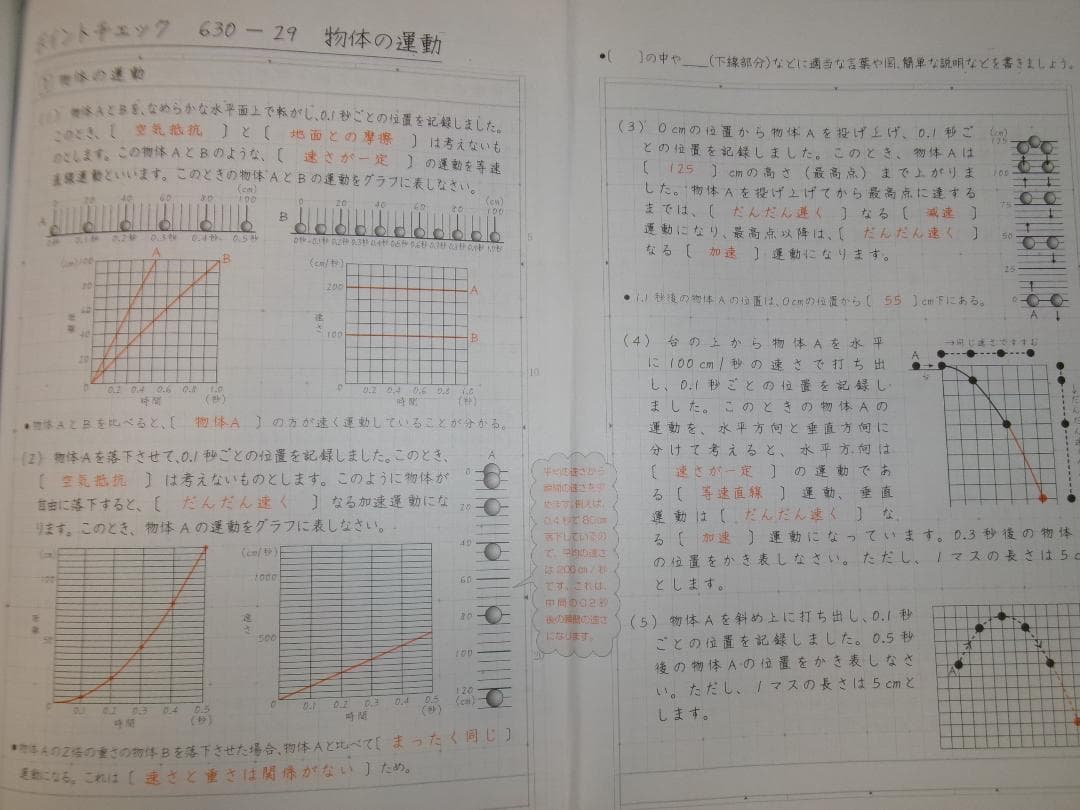 ポイントチェック 630-29 物体の運動
1 物体の運動
(1) 物体AとBを、なめらかな水平面上で転がし、0.1秒ごとの位置を記録しました。
このとき、〔 空気抵抗 〕と〔 地面との摩擦 〕は考えないも
のとします。この物体AとBのような、〔 速さが一定 〕の運動を等速
直線運動といいます。このときの物体AとBの運動をグラフに表しなさい。
A 0 20 40 60 80 100 (cm)
0秒 0.1秒 0.2秒 0.3秒 0.4秒 0.5秒
B 0 20 40 60 80 100 (cm)
0秒 0.1秒 0.2秒 0.3秒 0.4秒 0.5秒 0.6秒 0.7秒 0.8秒 0.9秒 1.0秒
(cm) 100 80 60 40 20 0
距離
A B
0.2 0.4 0.6 0.8 1.0
時間 (秒)
(cm/秒) 200 100
速さ
A
B
0.2 0.4 0.6 0.8 1.0
時間 (秒)
●物体AとBを比べると、〔 物体A 〕の方が速く運動していることが分かる。
(2) 物体Aを落下させて、0.1秒ごとの位置を記録しました。このとき、
〔 空気抵抗 〕は考えないものとします。このように物体が
自由に落下すると、〔 だんだん速く 〕なる加速運動にな
ります。このとき、物体Aの運動をグラフに表しなさい。
(cm) 100 50
距離
0.1 0.2 0.3 0.4 0.5
時間 (秒)
(cm/秒) 1000 500
速さ
0.1 0.2 0.3 0.4 0.5
時間 (秒)
A
0
20
40
60
80
100
120
(cm)
平均の速さから
瞬間の速さを求
めます。例えば、
0.4秒で80cm
落下しているの
で、平均の速さ
は200cm/秒
です。これは、
中間の0.2秒
後の瞬間の速さ
になります。
●物体Aの2倍の重さの物体Bを落下させた場合、物体Aと比べて〔 まったく同じ 〕
運動になる。これは〔 速さと重さは関係がない 〕ため。
5
10
20
●( )の中や___(下線部分)などに適当な言葉や図、簡単な説明などを書きましょう。
(3) 0cmの位置から物体Aを投げ上げ、0.1秒ご
との位置を記録しました。このとき、物体Aは
〔 125 〕cmの高さ(最高点)まで上がりま
した。物体Aを投げ上げてから最高点に達する
までは、〔 だんだん遅く 〕なる〔 減速 〕
運動になり、最高点以降は、〔 だんだん速く 〕
なる〔 加速 〕運動になります。
(cm)
125
100
75
50
25
0
A
●1.1秒後の物体Aの位置は、0cmの位置から〔 55 〕cm下にある。
(4) 台の上から物体Aを水平
に100cm/秒の速さで打ち出
し、0.1秒ごとの位置を記録し
ました。このときの物体Aの
運動を、水平方向と垂直方向に
分けて考えると、水平方向は
〔 速さが一定 〕の運動であ
る〔 等速直線 〕運動、垂直
運動は〔 だんだん速く 〕な
る〔 加速 〕運動になっています。0.3秒後の物体
の位置をかき表しなさい。ただし、1マスの長さは5c
とします。
→同じ速さですすむ
A
だんだん
(5) 物体Aを斜め上に打ち出し、0.1秒
ごとの位置を記録しました。0.5秒
後の物体Aの位置をかき表しなさ
い。ただし、1マスの長さは5cmと
します。
A